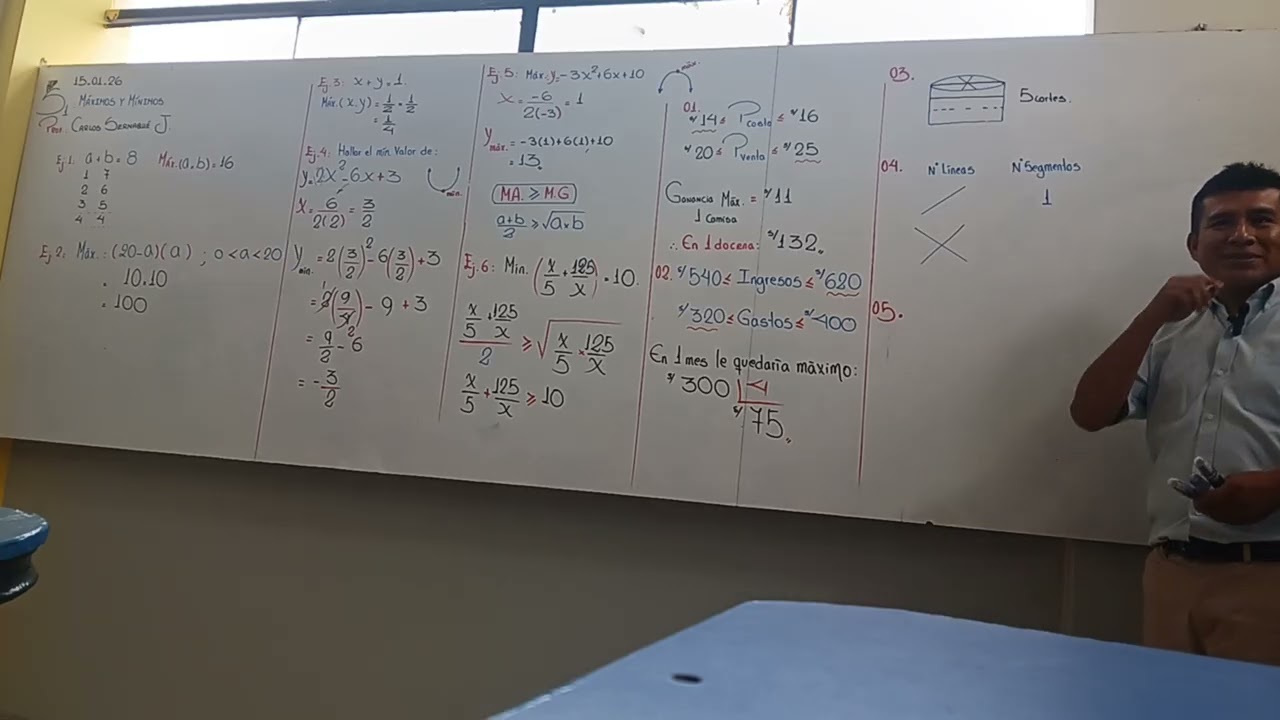 15.01.26
S1
MÁXIMOS Y MÍNIMOS
Prof. CARLOS SERNAQUÉ J.
Ej.1: a+b=8 Máx.(a.b)=16
1 7
2 6
3 5
4 4
Ej.2: Máx.=(20-a)(a) ; 0<a<20
= 10.10
= 100
Ej.3: x+y=1
Máx.(x.y)=1/2·1/2
=1/4
Ej.4: Hallar el mín. Valor de:
y=2x²-6x+3
mín.
x=6/2(2)=3/2
y mín.=2(3/2)²-6(3/2)+3
=2(9/4)-9+3
=9/2-6
=-3/2
Ej.5: Máx. y=-3x²+6x+10
máx.
x=-6/2(-3)=1
y máx.=-3(1)+6(1)+10
=13
MA ≥ M.G
a+b/2 ≥ √a×b
Ej.6: Min.(x/5+125/x)=10.
x/5+125/x/2 ≥ √x/5×125/x
x/5+125/x ≥ 10
01.
s/14 ≤ Pcosto ≤ s/16
s/20 ≤ Pventa ≤ s/25
Ganancia Máx. = s/11
1 camisa
∴ En 1 docena: s/132
02. s/540 ≤ Ingresos ≤ s/620
s/320 ≤ Gastos ≤ s/400
En 1 mes le quedaría máximo:
s/300 4
s/75
03.
5 cortes.
04. N° líneas N° Segmentos
1
05.